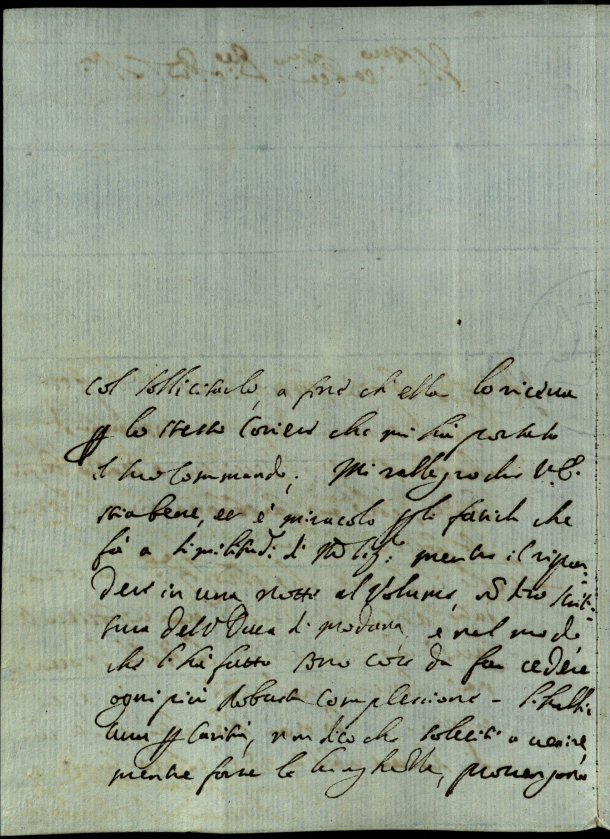 col sollicitarlo, a fine ch'ella lo riceva
p lo stesso Coriere che mi hà portato
il suo Commando; Mi rallegro che V.E.
stia bene, et è miracolo p le fatiche che
fà a similitud. di mentre il rispon
dere in una notte al Volume, scrit-
tura del Duca di Modana, e nel modo
che l'hà fatto sono cose da far cedere
ogni più robusta complessione -
una p Carità, non dico che soleciti a venire
mentre forse le lunghette,